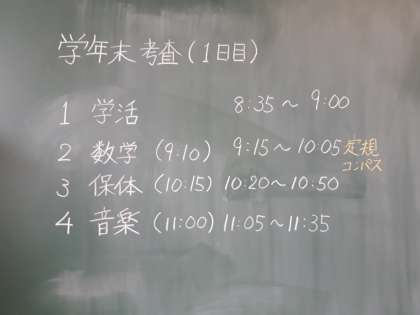 学年末考査(1日目)
1 学活 8:35〜9:00
2 数学 (9:10) 9:15〜10:05 定規
コンパス
3 保体 (10:15) 10:20〜10:50
4 音楽 (11:00) 11:05〜11:35